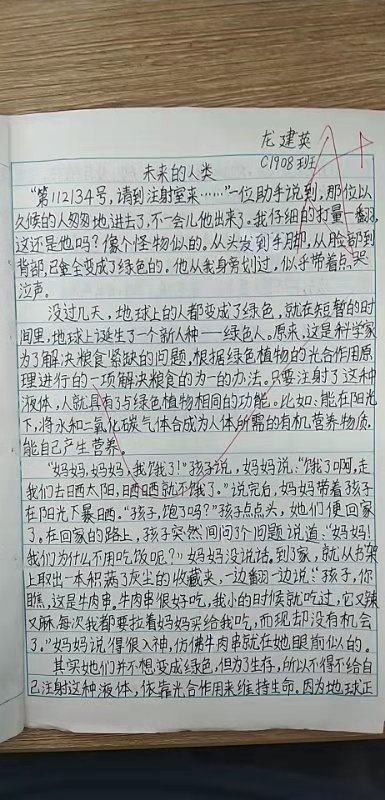 龙建英
C1908班
未来的人类
"第112134号,请到注射室来……"一位助手说到,那位以
久候的人匆匆地进去了,不一会儿他出来了。我仔细的打量一翻,
这还是他吗?像个怪物似的。从头发到手脚,从脸部到
背部,已全变成了绿色的。他从我身旁划过,似乎带着点哭
泣声。
没过几天,地球上的人都变成了绿色,就在短暂的时
间里,地球上诞生了一个新人种——绿色人。原来,这是科学家
为了解决粮食紧缺的问题,根据绿色植物的光合作用原
理进行的一项解决粮食的为一的办法。只要注射了这种
液体,人就具有了与绿色植物相同的功能。比如:能在阳光
下,将水和二氧化碳气体合成为人体所需的有机营养物质,
能自己产生营养。
"妈妈,妈妈,我饿了!"孩子说,妈妈说:"饿了啊,走
我们去日晒太阳,日晒晒就不饿了。"说完后,妈妈带着孩子
在阳光下暴晒。"孩子,饱了吗?"孩子点点头,她们便回家
了。在回家的路上,孩子突然间问了个问题说道:"妈妈!
我们为什么不用吃饭呢?"妈妈没说话。到了家,就从书架
上取出一本积满了灰尘的收藏夹,一边翻一边说:"孩子,你
瞧,这是牛肉串。牛肉串很好吃,我小的时候就吃过,它又辣
又麻,每次我都要拉着妈妈买给我吃,而现却没有机会
了。"妈妈说得很入神,仿佛牛肉串就在她眼前似的。
其实她们并不想变成绿色,但为了生存,所以不得不给自
己注射这种液体,依靠光合作用来维持生命。因为地球正